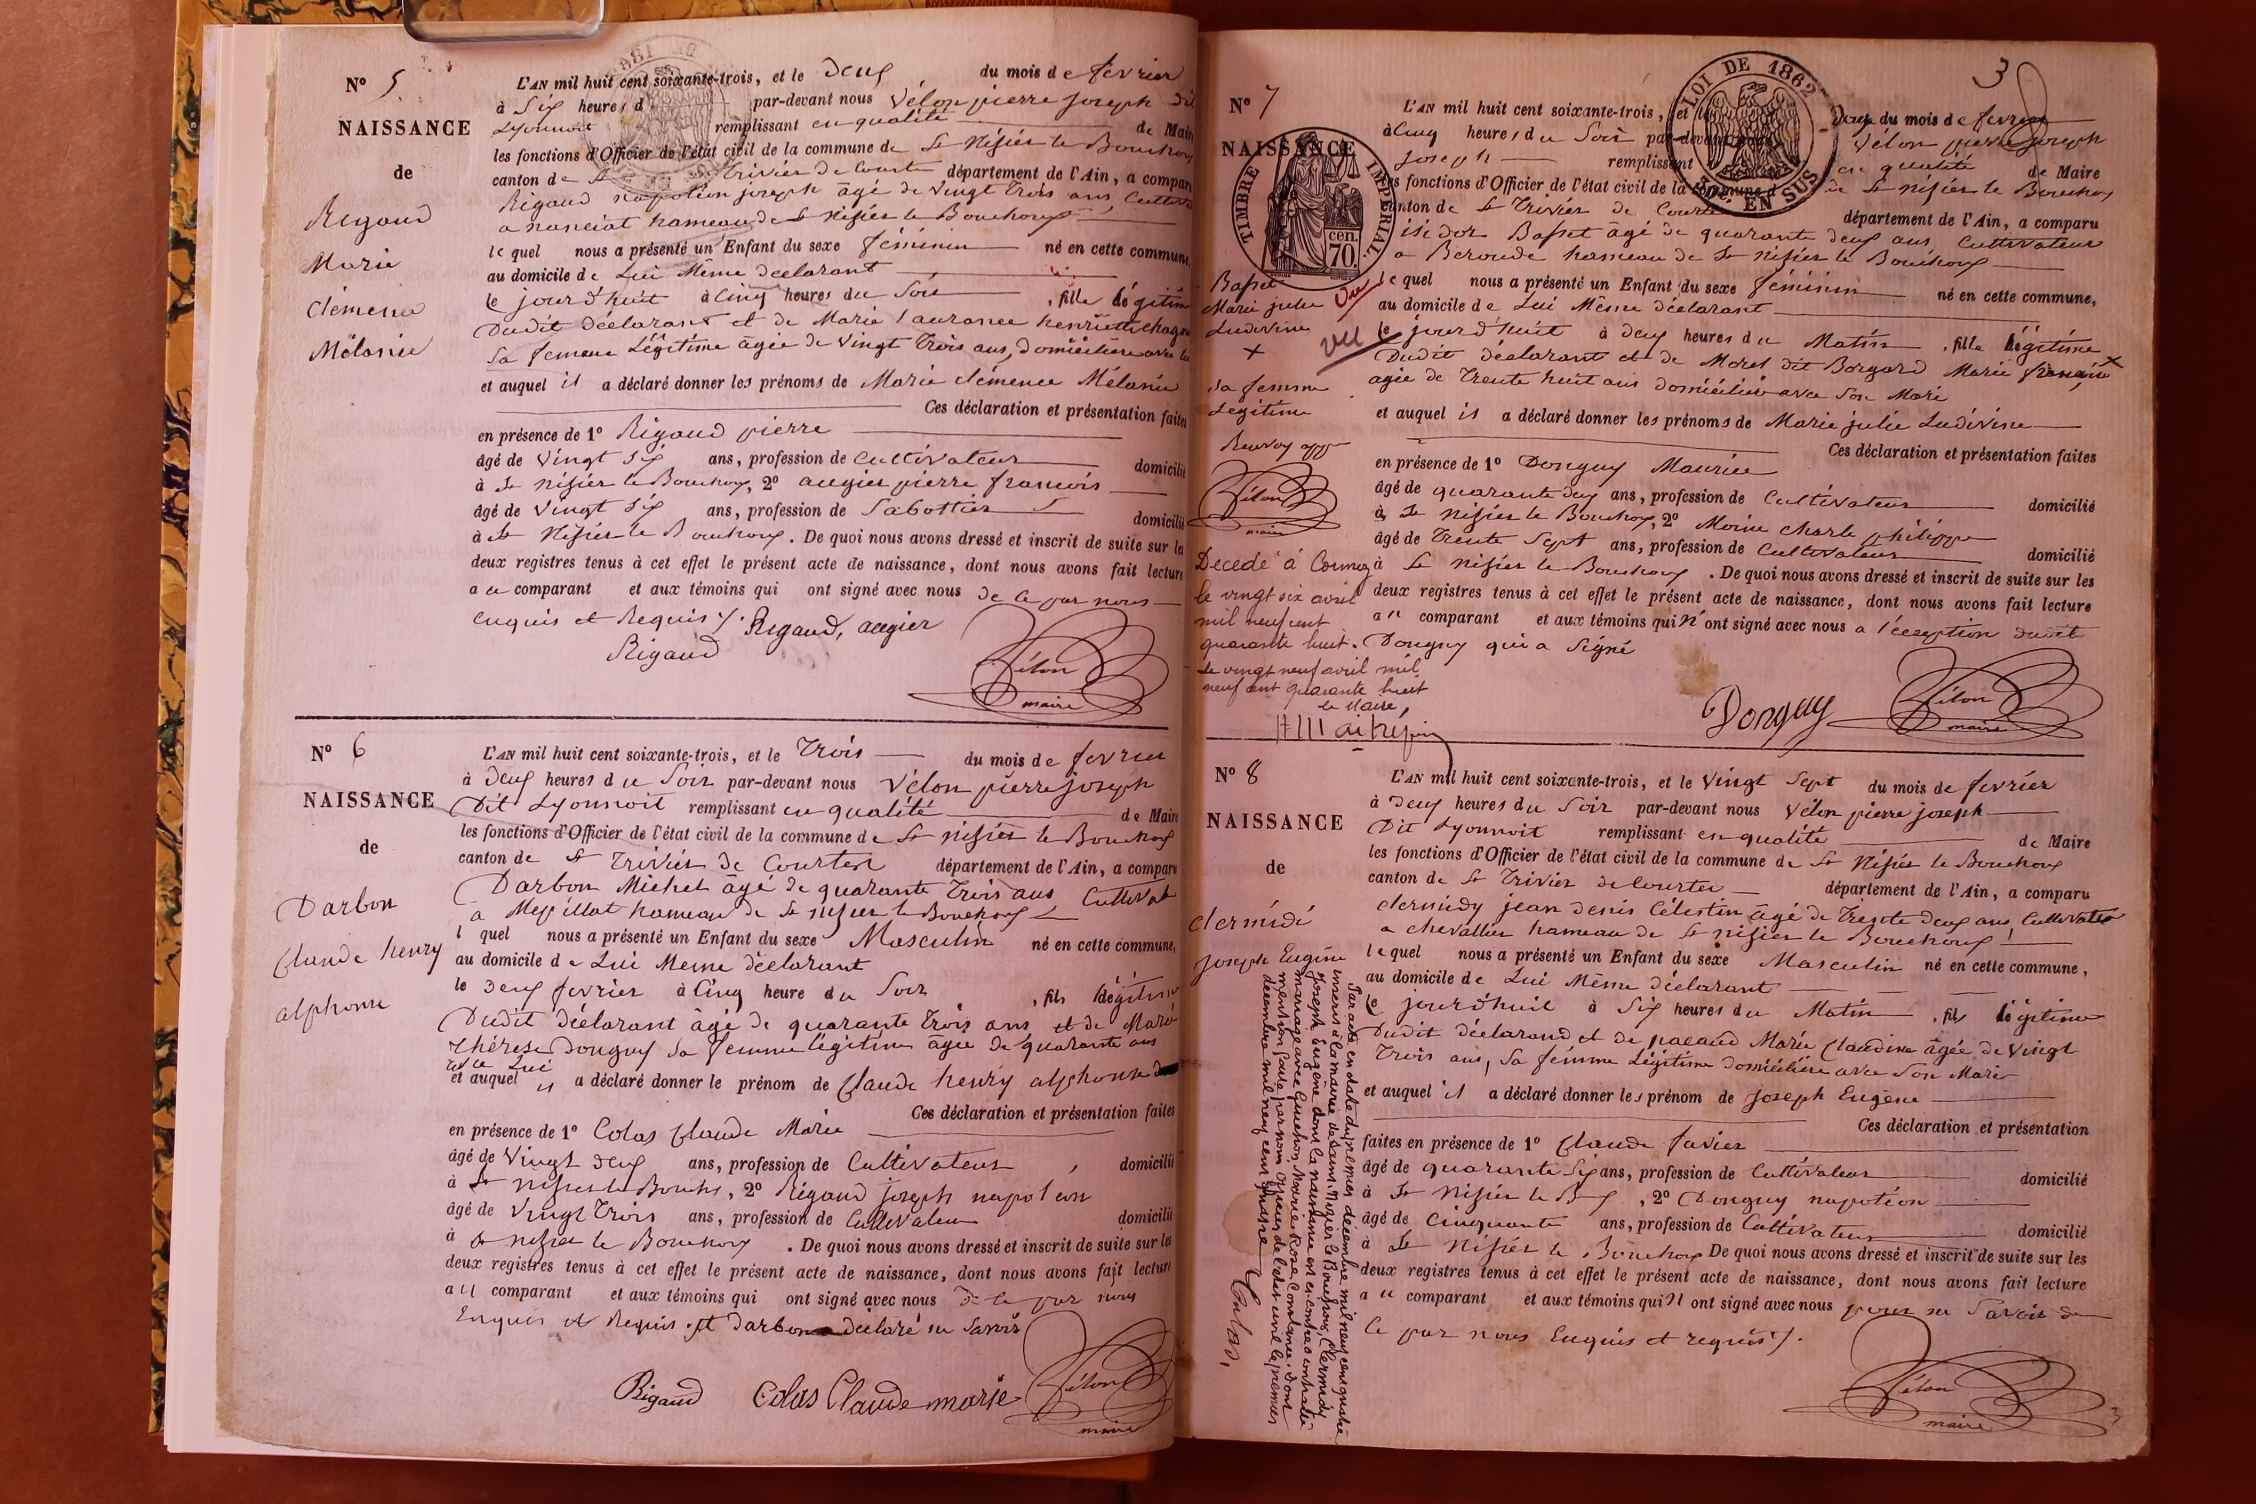 N° 5
NAISSANCE
de
Rigaud
Marie
Clémence
Mélanie
L'AN mil huit cent soixante-trois, et le deux du mois de fevrier
à Six heures d par-devant nous Vélon pierre joseph dit
Lyonnoit remplissant en qualité de Maire
les fonctions d'Officier de l'état civil de la commune de St Nifier le Bouchoux
canton de St Trivier de Courte département de l'Ain, a comparu
Rigaud napoléon joseph âgé de vingt trois ans, Cultiva
a nanciat hameau de St nifier le Bouchoux
lequel nous a présenté un Enfant du sexe féminin né en cette commune,
au domicile de Lui Même déclarant
le jourd'huit à Cinq heures du Soir , fille légitime
Dudit déclarant et de Marie Laurance henriette
Sa femme Légitime âgée de vingt trois ans, domicilière avec lui
et auquel il a déclaré donner les prénoms de Marie clémence Mélanie
Ces déclaration et présentation faites
en présence de 1° Rigaud pierre
âgé de vingt six ans, profession de Cultivateur domicilié
à St nifier le Bouchoux, 2° augier pierre francois
âgé de vingt six ans, profession de Sabottier domicilié
à St Nifier le Bouchoux. De quoi nous avons dressé et inscrit de suite sur les
deux registres tenus à cet effet le présent acte de naissance, dont nous avons fait lecture
au comparant et aux témoins qui ont signé avec nous de ce par nous
enquis et Requis. Rigaud, augier
Rigaud
Vélon
maire
N° 6
NAISSANCE
de
Darbon
Claude henry
alphonse
L'AN mil huit cent soixante-trois, et le Trois du mois de fevrier
à deux heures du Soir par-devant nous Vélon pierre joseph
Dit Lyonnoit remplissant en qualité de Maire
les fonctions d'Officier de l'état civil de la commune de St nifier le Bouchoux
canton de St Trivier de Courtes département de l'Ain, a comparu
Darbon Michel âgé de quarante trois ans Cultivat
a Mépillat hameau de St nifier le Bouchoux
l quel nous a présenté un Enfant du sexe Masculin né en cette commune,
au domicile de Lui Meme déclarant
le deux fevrier à Cinq heure du Soir , fils légitime
Dudit déclarant âgé de quarante trois ans et de Marie
thérése Donguy sa femme légitime âgée de quarante ans
avec Lui
et auquel il a déclaré donner le prénom de Claude henry alphonse
Ces déclaration et présentation faites
en présence de 1° Colas Claude Marie
âgé de Vingt deux ans, profession de Cultivateur , domicilié
à St nifier le Bouchx, 2° Rigaud joseph napoleon
âgé de Vingt trois ans, profession de Cultivateur domicilié
à St nifier le Bouchoux. De quoi nous avons dressé et inscrit de suite sur les
deux registres tenus à cet effet le présent acte de naissance, dont nous avons fait lecture
au comparant et aux témoins qui ont signé avec nous de ce par nous
Enquis et Requis. et darbon declaré ne Savoir
Rigaud Colas Claude marie Vélon
maire
3
N° 7
NAISSANCE
TIMBRE IMPÉRIAL
70 cen.
LOI DE 1862
EN SUS
Basset
Marie julie
Ludivine
Vu
vu
sa femme
Légitime
Renvoy app
Vélon
maire
Decédé à Cormoz
le vingt six avril
mil neuf cent
quarante huit.
le vingt neuf avril mil
neuf cent quarante huit
le Maire,
L'AN mil huit cent soixante-trois, et le Douze du mois de fevrier
à Cinq heures du Soir par-devant nous Vélon pierre joseph
joseph remplissant en qualité de Maire
les fonctions d'Officier de l'état civil de la commune de St nifier le Bouchoux
canton de St Trivier de Courte département de l'Ain, a comparu
isidor Basset âgé de quarante deux ans Cultivateur
a Beroude hameau de St nifier le Bouchoux
lequel nous a présenté un Enfant du sexe féminin né en cette commune,
au domicile de Lui Même déclarant
le jourd'huit à deux heures du Matin , fille légitime
Dudit déclarant et de Morel dit Borgard Marie françoise
agée de trente huit ans domicilière avec Son Mari
et auquel il a déclaré donner les prénoms de Marie julie Ludivine
Ces déclaration et présentation faites
en présence de 1° Donguy Maurice
âgé de quarante deux ans, profession de Cultivateur domicilié
à St nifier le Bouchoux, 2° Moine charle philippe
âgé de trente Sept ans, profession de Cultivateur domicilié
à St nifier le Bouchoux. De quoi nous avons dressé et inscrit de suite sur les
deux registres tenus à cet effet le présent acte de naissance, dont nous avons fait lecture
au comparant et aux témoins qui n'ont signé avec nous a l'éception dudit
Donguy qui a Signé
Donguy Vélon
maire
N° 8
NAISSANCE
de
Clermidi
joseph Eugène
Par acte en date du premier décembre mil neuf cent quatre
inscrit à la mairie de Saint-Nizier le Bouchoux, Clermidy
Joseph Eugène dont la naissance est ci-contre a contracté
mariage avec Guichon Marie Rose Constance. Dont
mention faite par nous officier de l'état civil le premier
décembre mil neuf cent quatre
L'AN mil huit cent soixante-trois, et le Vingt Sept du mois de fevrier
à deux heures du Soir par-devant nous Vélon pierre joseph
Dit Lyonnoit remplissant en qualité de Maire
les fonctions d'Officier de l'état civil de la commune de St Nifier le Bouchoux
canton de St Trivier de Courtes département de l'Ain, a comparu
Clermidy jean denis Célestin âgé de trente deux ans, Cultivateur
a chevallier hameau de St nifier le Bouchoux
lequel nous a présenté un Enfant du sexe Masculin né en cette commune,
au domicile de Lui Même déclarant
le jourd'huit à Six heures du Matin , fils légitime
Dudit déclarand et de pacaud Marie Claudine âgée de vingt
trois ans, Sa femme Légitime domicilière avec Son Mari
et auquel il a déclaré donner les prénom de joseph Eugène
Ces déclaration et présentation
faites en présence de 1° Claude favier
âgé de quarante Six ans, profession de Cultivateur domicilié
à St Nifier le Bx, 2° Donguy napoléon
âgé de Cinquante ans, profession de Cultivateur domicilié
à St Nifier le Bouchoux De quoi nous avons dressé et inscrit de suite sur les
deux registres tenus à cet effet le présent acte de naissance, dont nous avons fait lecture
au comparant et aux témoins qui n ont signé avec nous pour ne Savoir de
Ce par nous Enquis et requis.
Vélon
maire